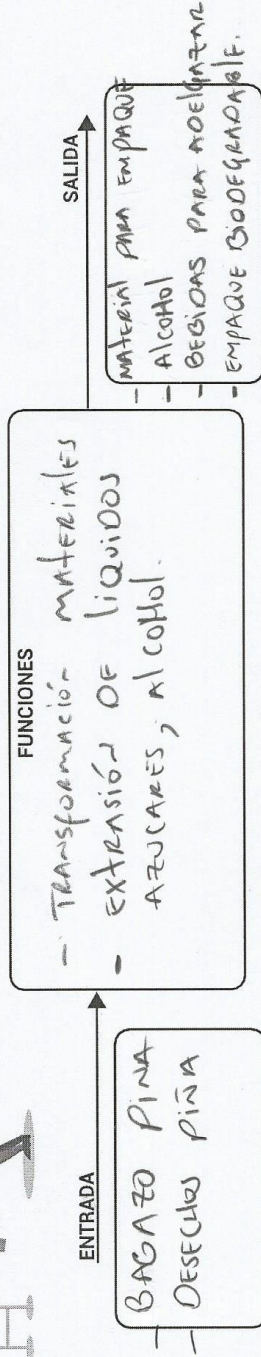 ENTRADA
- BAGAZO PIÑA
- DESECHOS PIÑA
FUNCIONES
- TRANSFORMACIÓN MATERIALES
- EXTRASIÓN DE LIQUIDOS
AZUCARES, AlCOHOl.
SALIDA
- MATERIAL PARA EMPAQUE
- AlCOHOl
- BEBIDAS PARA ADELGAZAR
- EMPAQUE BIODEGRADABLE.